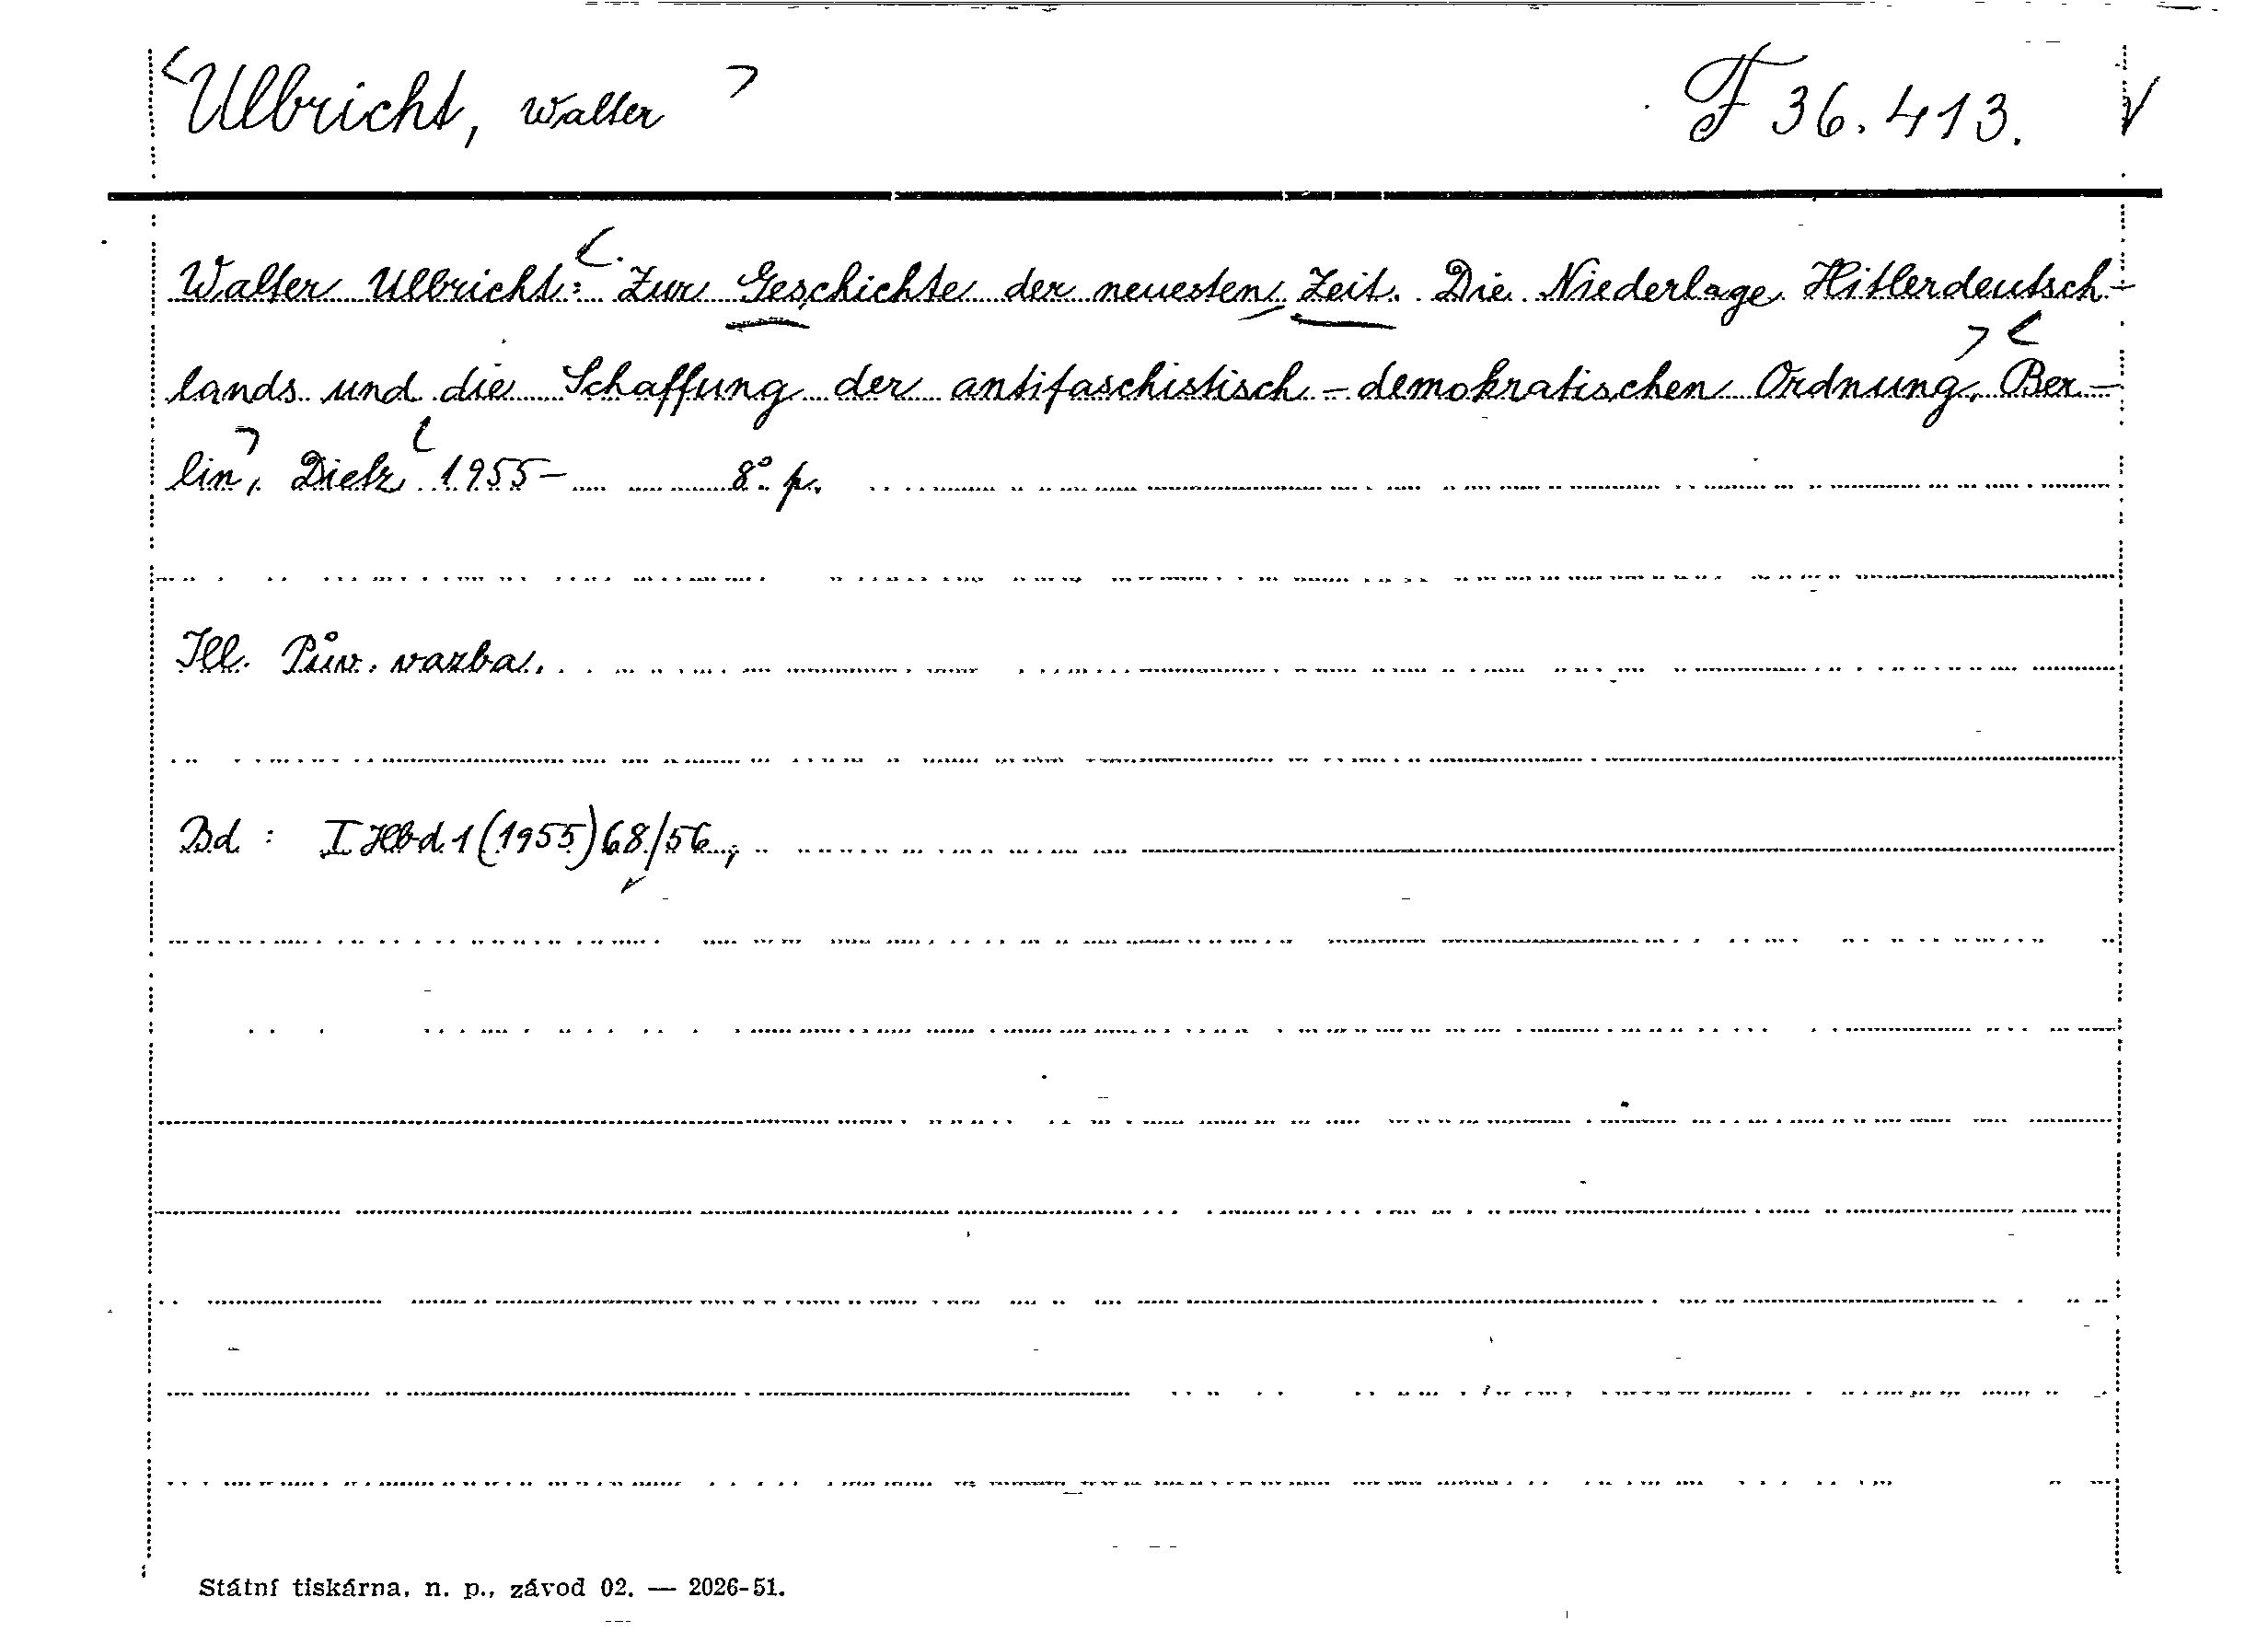 Ulbricht, Walter F 36.413.
Walter Ulbricht: Zur Geschichte der neuesten Zeit. Die Niederlage Hitlerdeutsch-
lands und die Schaffung der antifaschistisch-demokratischen Ordnung. Ber-
lin, Dietz 1955- 8° p.
Ill. Pův. vazba.
Bd : I Hbd. 1 (1955) 68/56,
Státní tiskárna, n. p., závod 02. — 2026-51.